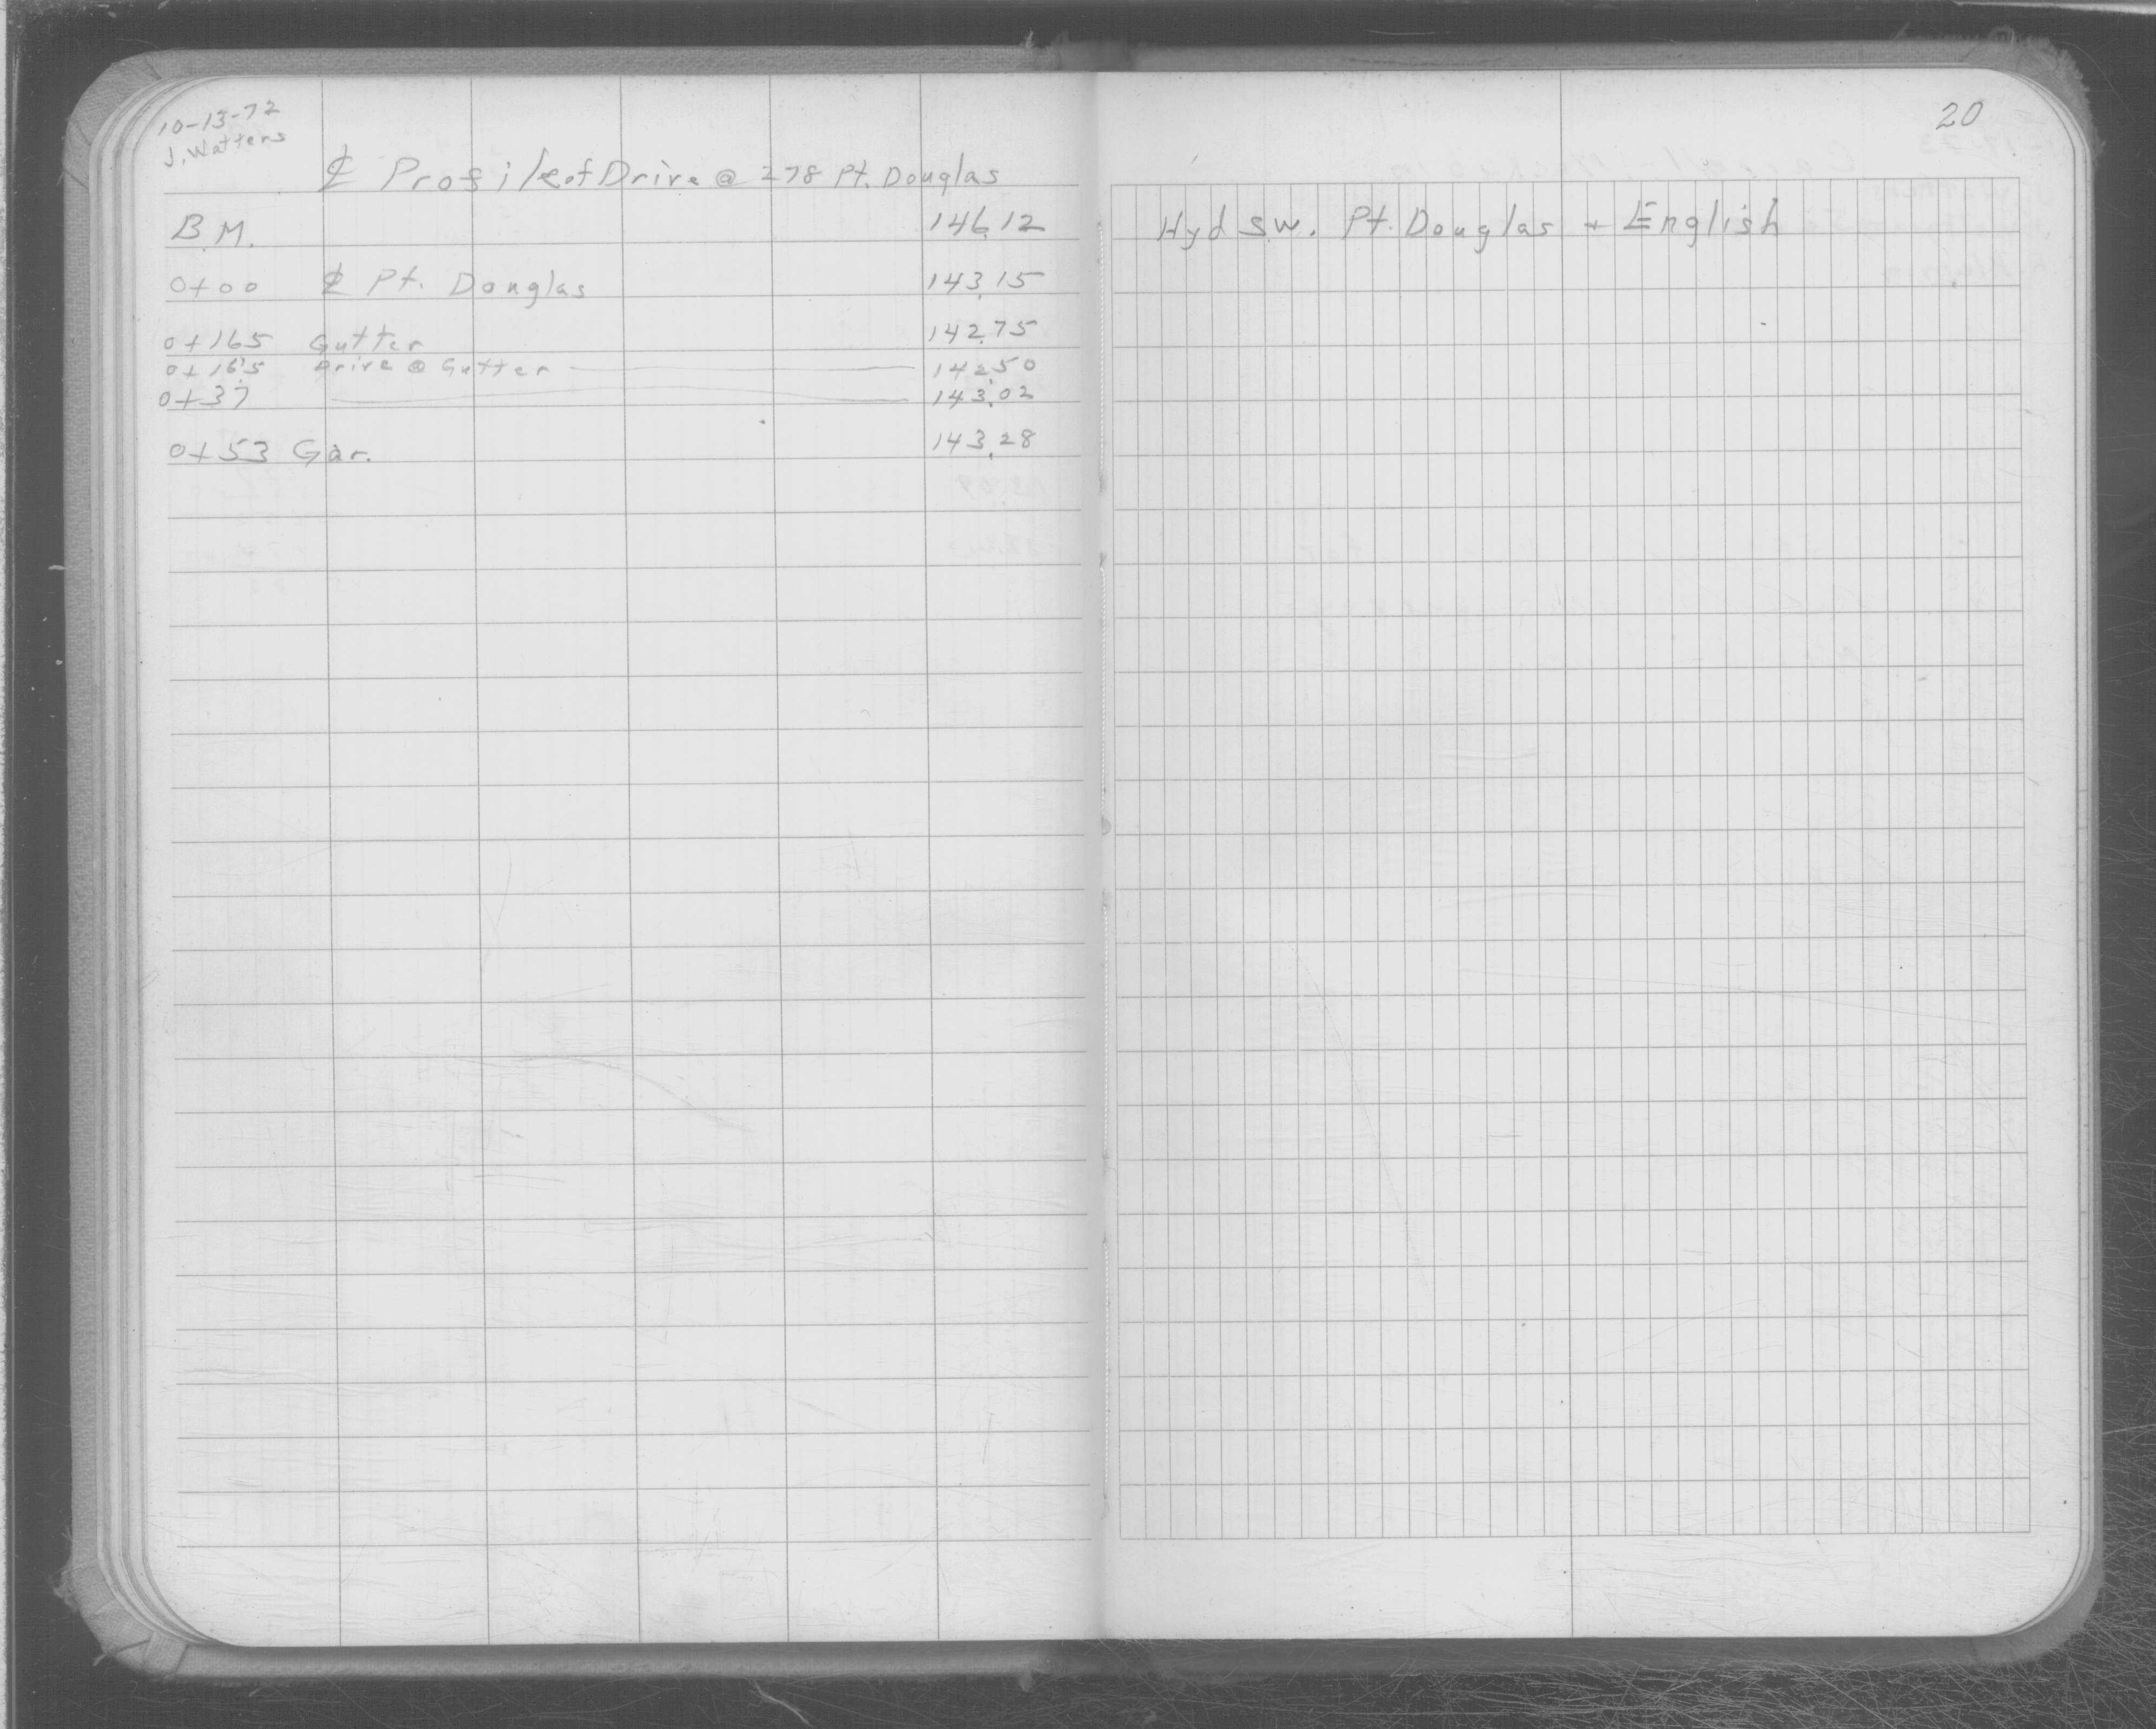 10-13-72
J. Watters
℄ Profile of Drive @ 278 Pt. Douglas
B.M. 146.12 Hyd S.W. Pt. Douglas + English
0+00 ℄ Pt. Douglas 143.15
0+165 Gutter 142.75
0+16.5 Drive @ Gutter 142.50
0+37 143.02
0+53 Gar. 143.28
20